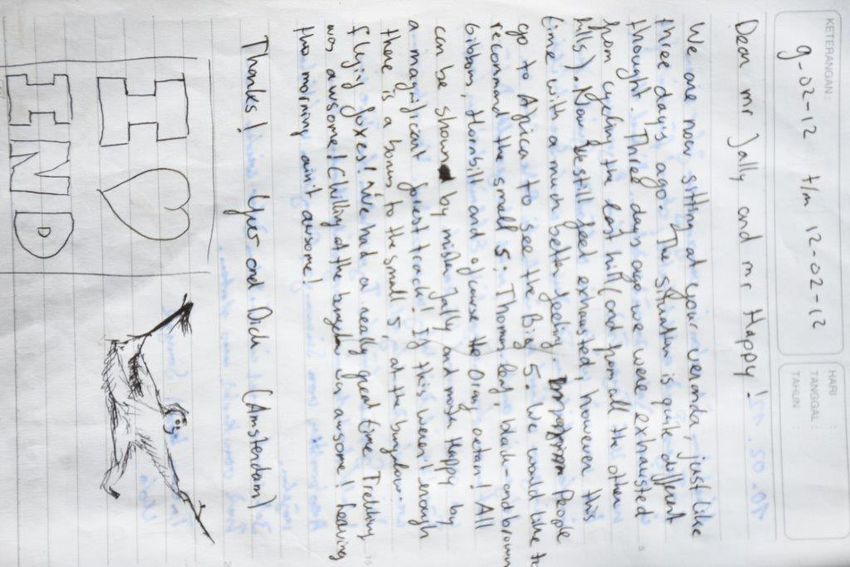 KETERANGAN:
9-02-12 t/m 12-02-12
HARI :
TANGGAL :
TAHUN :
Dear mr Jally and mr Happy!
We are now sitting at your veranda, just like
three days ago. The situation is quite different
thought. Three days ago we were exhausted
from cycling the last hill (and from all the other
hills). Now we still feel exhausted, however this
time with a much better feeling. People
go to Africa to see the Big 5. We would like to
recommand the small 5: Thomas leaf, black-and brown
Gibbons, Hornbill and ofcourse the Orang oetan! All
can be shown by mister Jally and mister Happy by
a magnificant forest track! If this wasn't enough
there is a bonus to the small 5, at the bungalow:
flying foxes! We had a really great time. Trekking
was awsome! Chilling at the bungalow was awsome! Leaving
tho morning ain't awsome!
Thanks! Yves and Dick (Amsterdam)
I
IND